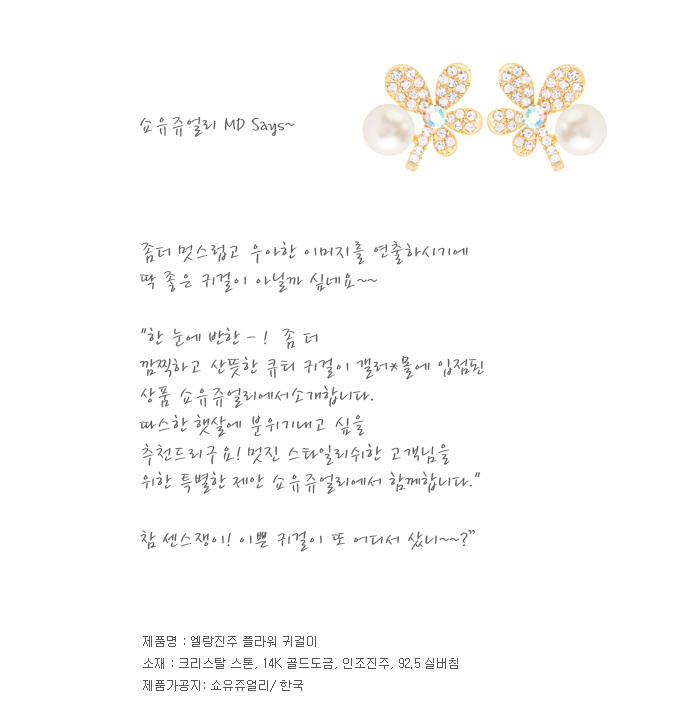 쇼유쥬얼리 MD Says~
좀더 멋스럽고 우아한 이미지를 연출하시기에
딱 좋은 귀걸이 아닐까 싶네요~~
"한 눈에 반한 - ! 좀 더
깜찍하고 산뜻한 큐티 귀걸이 갤러*몰에 입점된
상품 쇼유쥬얼리에서소개합니다.
따스한 햇살에 분위기내고 싶을
추천드리구요! 멋진 스타일리쉬한 고객님을
위한 특별한 제안 쇼유쥬얼리에서 함께합니다."
참 센스쟁이! 이쁜 귀걸이 또 어디서 샀니~~?"
제품명 : 엘랑진주 플라워 귀걸이
소재 : 크리스탈 스톤, 14K 골드도금, 인조진주, 92.5 실버침
제품가공지: 쇼유쥬얼리/ 한국